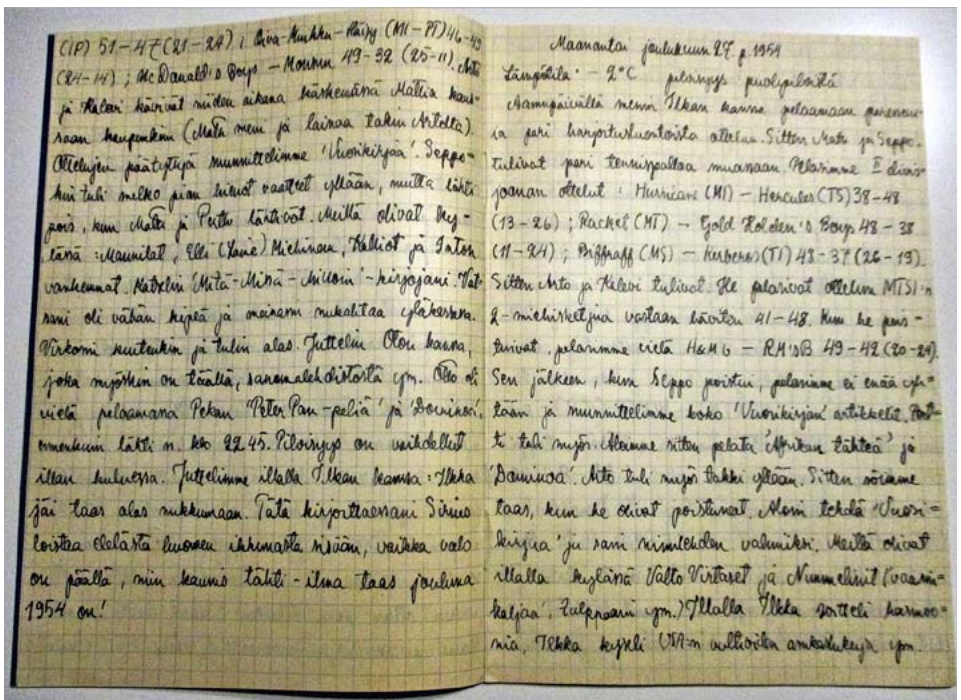 (IP) 51-47 (21-24); Siva-Hinkku-Häivy (MI-PT) 46-49
(24-14); McDonald's Boys - Mounin 49-32 (25-11). Arto
ja Kalevi kävivät niiden aikana käskemässä Mattia kans-
saan kaupunkiin (Matu meni ja lainaa takin Artolta).
Ottelujen päätyttyä suunnittelimme 'Vuosikirjaa'. Seppo-
kin tuli melko pian hienot vaatteet yllään, mutta lähti
pois, kun Matu ja Perttu lähtivät. Meillä olivat ky-
lässä: Maunulat, Elli (Laine) Michinen, Kalliot ja Inton
vanhemmat. Katselin 'Mitä-Missä-Milloin'-kirjojani. Vat-
sani oli vähän kipeä ja menin nukahtaa yläkerrassa.
Virkosin kuitenkin ja tulin alas. Juttelin Oton kanssa,
joka myöskin on täällä, sanomalehdistöstä ym. Otto oli
vielä pelaamassa Pekan 'Peter Pan-peliä' ja 'Dominoa',
ennenkuin lähti n. klo 22.45. Pilvisyys on vaihdellut
illan kuluessa. Juttelimme illalla Ilkan kanssa: Ilkka
jäi taas alas nukkumaan. Tätä kirjoittaessani Sirius
loistaa etelästä huoneen ikkunasta sisään, vaikka valo
on päällä, niin kaunis tähti-ilma taas jouluna
1954 on!
Maanantai joulukuun 27. p. 1954
Lämpötila -2°C pilvisyys puolipilvistä
Aamupäivällä menin Ilkan kanssa pelaamaan
ja pari harjoitusluontoista ottelua. Sitten Matu ja Seppo
tulivat pari tennispalloa muassaan. Pelasimme II divisi-
joonan ottelut: Hurricane (MI) - Hercules (TS) 38-48
(13-26); Racket (MT) - Gold Holden's Boys 48-38
(11-24); Riffraff (MS) - Kerberos (TI) 48-37 (26-19).
Sitten Arto ja Kalevi tulivat. He pelasivat ottelun MTSI:n
2-miehisketjua vastaan häviten 41-48. Kun he pois-
tuivat, pelasimme vielä H&MG - RM'sB 49-42 (20-24).
Sen jälkeen, kun Seppo poistui, pelasimme ei enää yh-
tään ja suunnittelimme koko 'Vuosikirjan' artikkelit. Pert-
ti tuli myös. Aloimme sitten pelata 'Afrikan tähteä' ja
'Dominoa'. Arto tuli myös takki yllään. Sitten söimme
taas, kun he olivat poistuneet. Aloin tehdä 'Vuosi-
kirjaa' ja sain nimilehden valmiiksi. Meillä olivat
illalla kylässä Valto Virtaset ja Nummelinit (vaarin-
kaljaa, ym.) Illalla Ilkka soitteli harmoo-
nia, Ilkka kyseli USA:n valtioiden asukaslukuja ym.